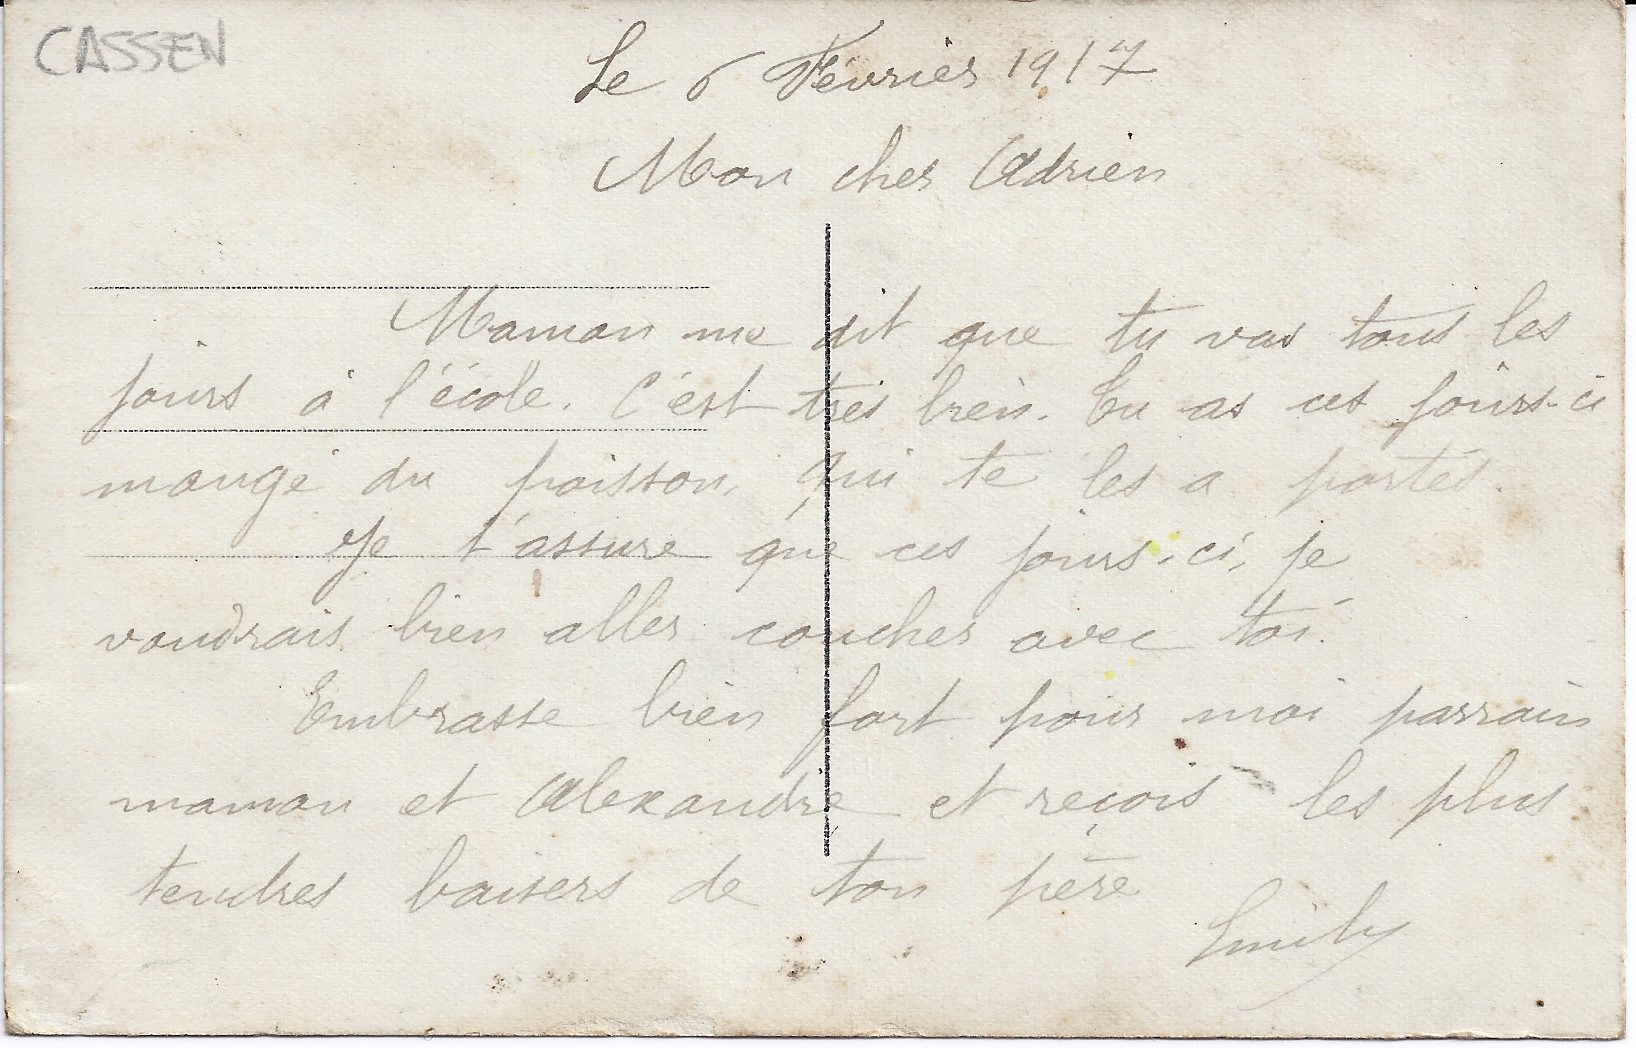 CASSEN
Le 6 Février 1917
Mon cher Adrien
Maman me dit que tu vas tous les
jours à l'école. C'est très bien. Tu as ces jours-ci
mangé du poisson, qui te les a portés.
Je t'assure que ces jours-ci, je
voudrais bien aller coucher avec toi.
Embrasse bien fort pour moi parrain
maman et Alexandre et reçois les plus
tendres baisers de ton père